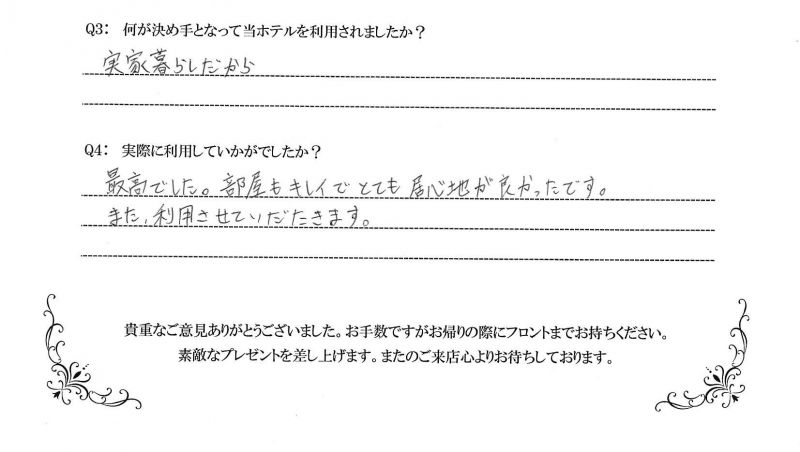 Q3： 何が決め手となって当ホテルを利用されましたか？
実家暮らしだから
Q4： 実際に利用していかがでしたか？
最高でした。部屋もキレイでとても居心地が良かったです。
また、利用させていだたきます。
貴重なご意見ありがとうございました。お手数ですがお帰りの際にフロントまでお持ちください。
素敵なプレゼントを差し上げます。またのご来店心よりお待ちしております。